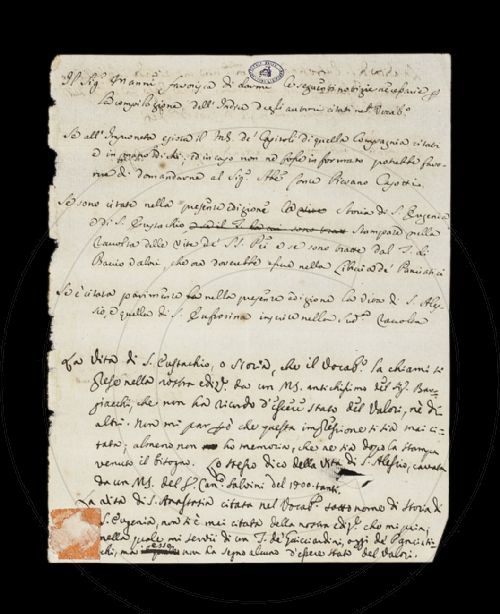 Il Sig.r Manni favorisca di darmi le seguenti notizie necessarie p
la compilazione dell'Indice degli autori citati nel Vocab.o
Se all'Impruneta esista il MS. de' Capitoli di quella Compagnia citati
e in mano di chi, ed in caso non ne fosse informato potrebbe favo-
rirmi di domandarne al Sig.r Pievano
Se sono citate nella presente edizione le Storia di S. Eugenia
e di S. Eustachio stampate nella
Raccolta delle Vite de' SS. PP. e se sono tratte dal T. di
Baccio Valori, che ora dovrebbe essere nella Libreria de' Panciatici
Se è citata parimente nella presente edizione la Vita di S. Ales-
sio, e quella di S. Eufrosina inserite nella sud.a Raccolta
La Vita di S. Eustachio, o Storia, che il Vocab.o la chiami si
prese nella nostra ediz. da un MS. antichissimo del Sig. Bar-
giacchi, che non ha ricordo d'essere stato del Valori, nè di
altri. Non mi par però che questa impressione si sia mai ci-
tata, almeno non ho memoria, che ne sia dopo la stampa
venuto il bisogno. Lo stesso dico della Vita di S. Alessio, cavata
da un MS. del S. Can. Salvini del 1400. tanti.
La Vita di S. Anastasia citata nel Vocab.o nome di Storia di
S. Eugenia, non si è mai citata della nostra ediz. che mi sovvenga,
nella quale mi servii di un T. de' Guicciardini, oggi de' Panciati-
chi, ma non ha segno alcuno d'essere stato del Valori.